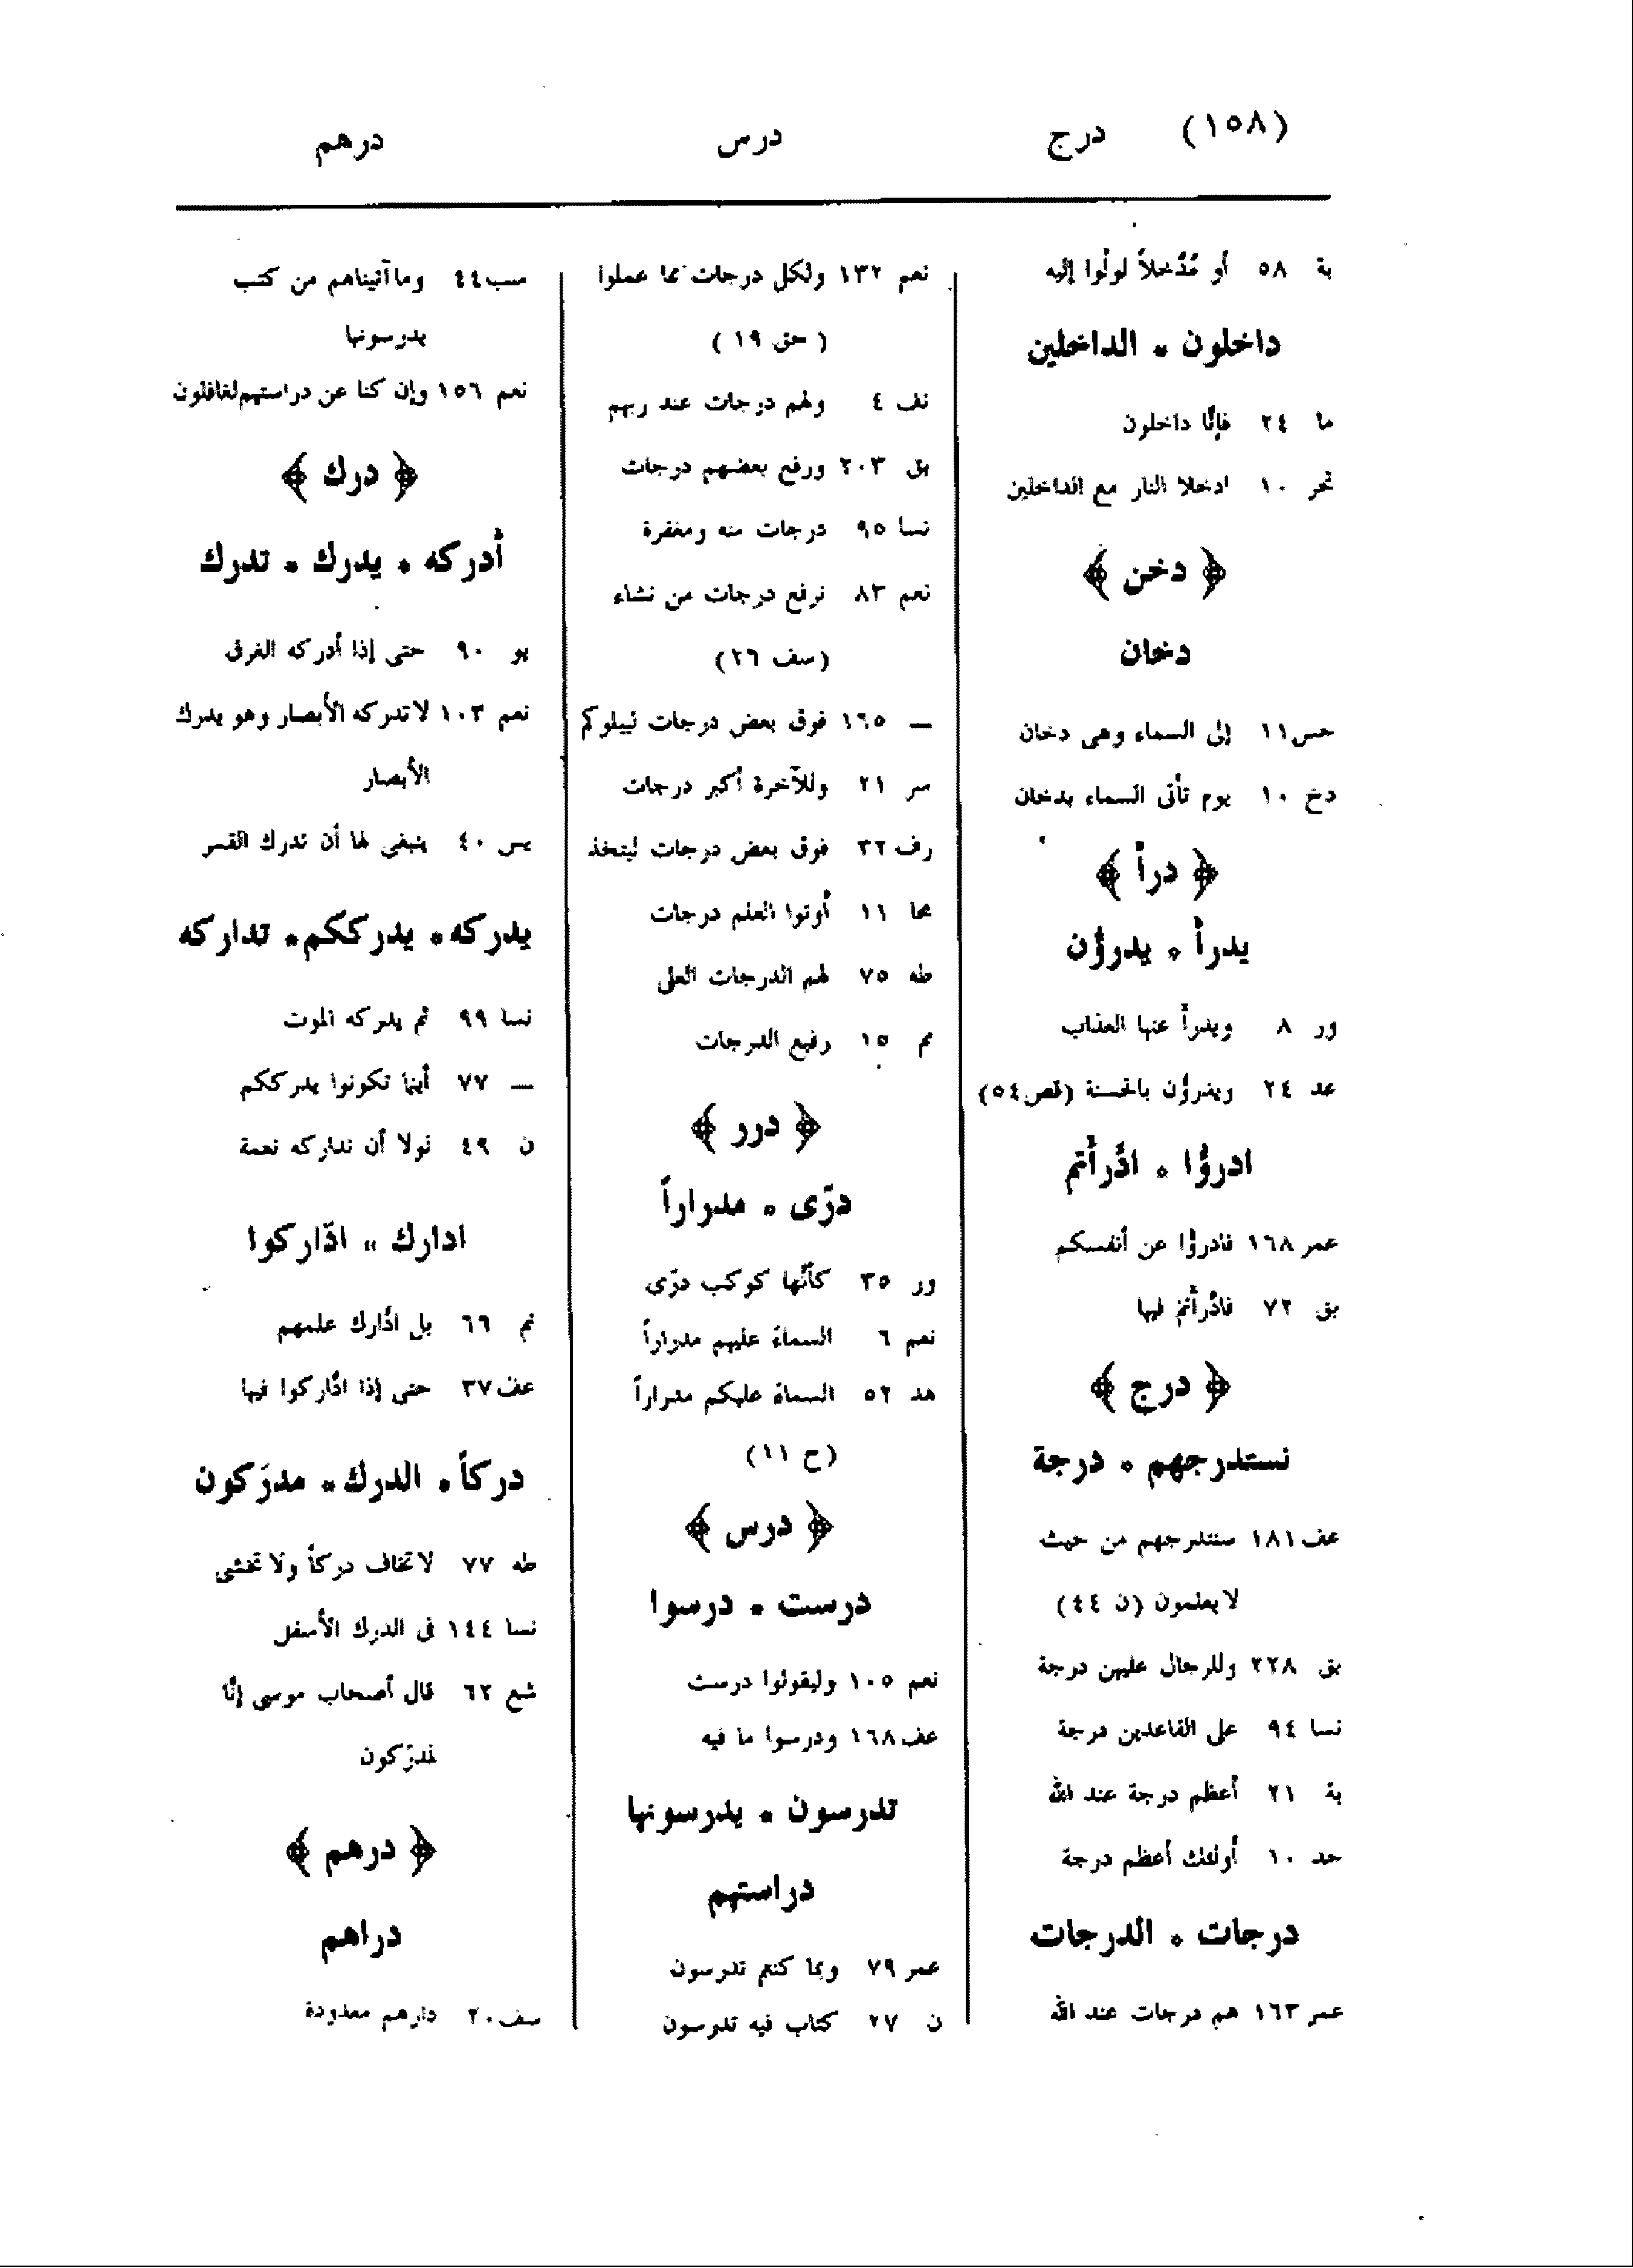 (١٥٨) درج درس درهم
بة ٥٨ أو مُدّخلاً لولّوا إليه
داخلون * الداخلين
ما ٢٤ فإنّا داخلون
تحر ١٠ ادخلا النار مع الداخلين
﴿ دخن ﴾
دخان
حس ١١ إلى السماء وهى دخان
دخ ١٠ يوم تأتى السماء بدخان
﴿ درأ ﴾
يدرأ * يدرؤن
ور ٨ ويدرأ عنها العذاب
عد ٢٤ ويدرؤن بالحسنة (قص ٥٤)
ادرؤا * ادّرأتم
عمر ١٦٨ فادرؤا عن أنفسكم
بق ٧٢ فادّرأتم فيها
﴿ درج ﴾
نستدرجهم * درجة
عف ١٨١ سنتدرجهم من حيث
لا يعلمون (ن ٤٤)
بق ٢٢٨ وللرجال عليهن درجة
نسا ٩٤ على القاعدين درجة
بة ٢١ أعظم درجة عند الله
حد ١٠ أولئك أعظم درجة
درجات * الدرجات
عمر ١٦٣ هم درجات عند الله
نعم ١٣٢ ولكل درجات مما عملوا
( حق ١٩ )
نف ٤ ولهم درجات عند ربهم
بق ٢٠٣ ورفع بعضهم درجات
نسا ٩٥ درجات منه ومغفرة
نعم ٨٣ نرفع درجات من نشاء
(سف ٢٦)
— ١٦٥ فوق بعض درجات ليبلوكم
سر ٢١ وللآخرة أكبر درجات
رف ٣٢ فوق بعض درجات ليتخذ
مجا ١١ أوتوا العلم درجات
طه ٧٥ لهم الدرجات العلى
مم ١٥ رفيع الدرجات
﴿ درر ﴾
درّى * مدراراً
ور ٣٥ كأنّها كوكب درّى
نعم ٦ السماءَ عليهم مدراراً
هد ٥٢ السماءَ عليكم مدراراً
(ح ١١)
﴿ درس ﴾
درست * درسوا
نعم ١٠٥ وليقولوا درست
عف ١٦٨ ودرسوا ما فيه
تدرسون * يدرسونها
دراستهم
عمر ٧٩ وبما كنتم تدرسون
ن ٢٧ كتاب فيه تدرسون
سب ٤٤ وما آتيناهم من كتب
يدرسونها
نعم ١٥٦ وإن كنا عن دراستهم لغافلون
﴿ درك ﴾
أدركه * يدرك * تدرك
يو ٩٠ حتى إذا أدركه الغرق
نعم ١٠٣ لا تدركه الأبصار وهو يدرك
الأبصار
يس ٤٠ ينبغى لها أن تدرك القمر
يدركه * يدرككم * تداركه
نسا ٩٩ ثم يدركه الموت
— ٧٧ أينما تكونوا يدرككم
ن ٤٩ لولا أن تداركه نعمة
ادارك * ادّاركوا
نم ٦٦ بل ادّارك علمهم
عف ٣٧ حتى إذا ادّاركوا فيها
دركاً * الدرك * مدرَكون
طه ٧٧ لا تخاف دركاً ولا تخشى
نسا ١٤٤ فى الدرك الأسفل
شع ٦٢ قال أصحاب موسى إنّا
لمدرَكون
﴿ درهم ﴾
دراهم
سف ٢٠ دارهم معدودة